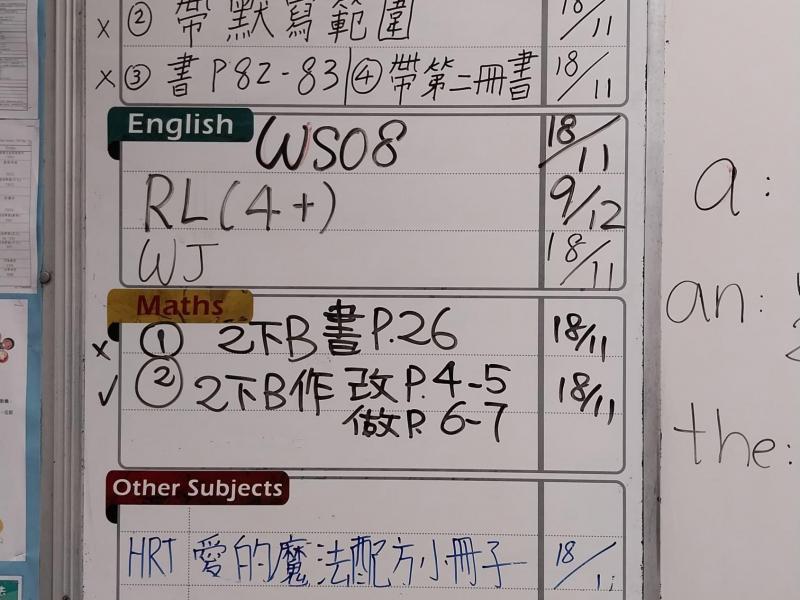 x ② 帶默寫範圍 18/11
x ③ 書 P82-83 ④ 帶第二冊書 18/11
English WS08 18/11
RL(4+) 9/12
WJ 18/11
Maths
x ① 2下B書 P.26 18/11
✓ ② 2下B作 改 P.4-5 18/11
做P. 6-7
Other Subjects
HRT 愛的魔法配方小冊子 18/11
a:
an:
the: